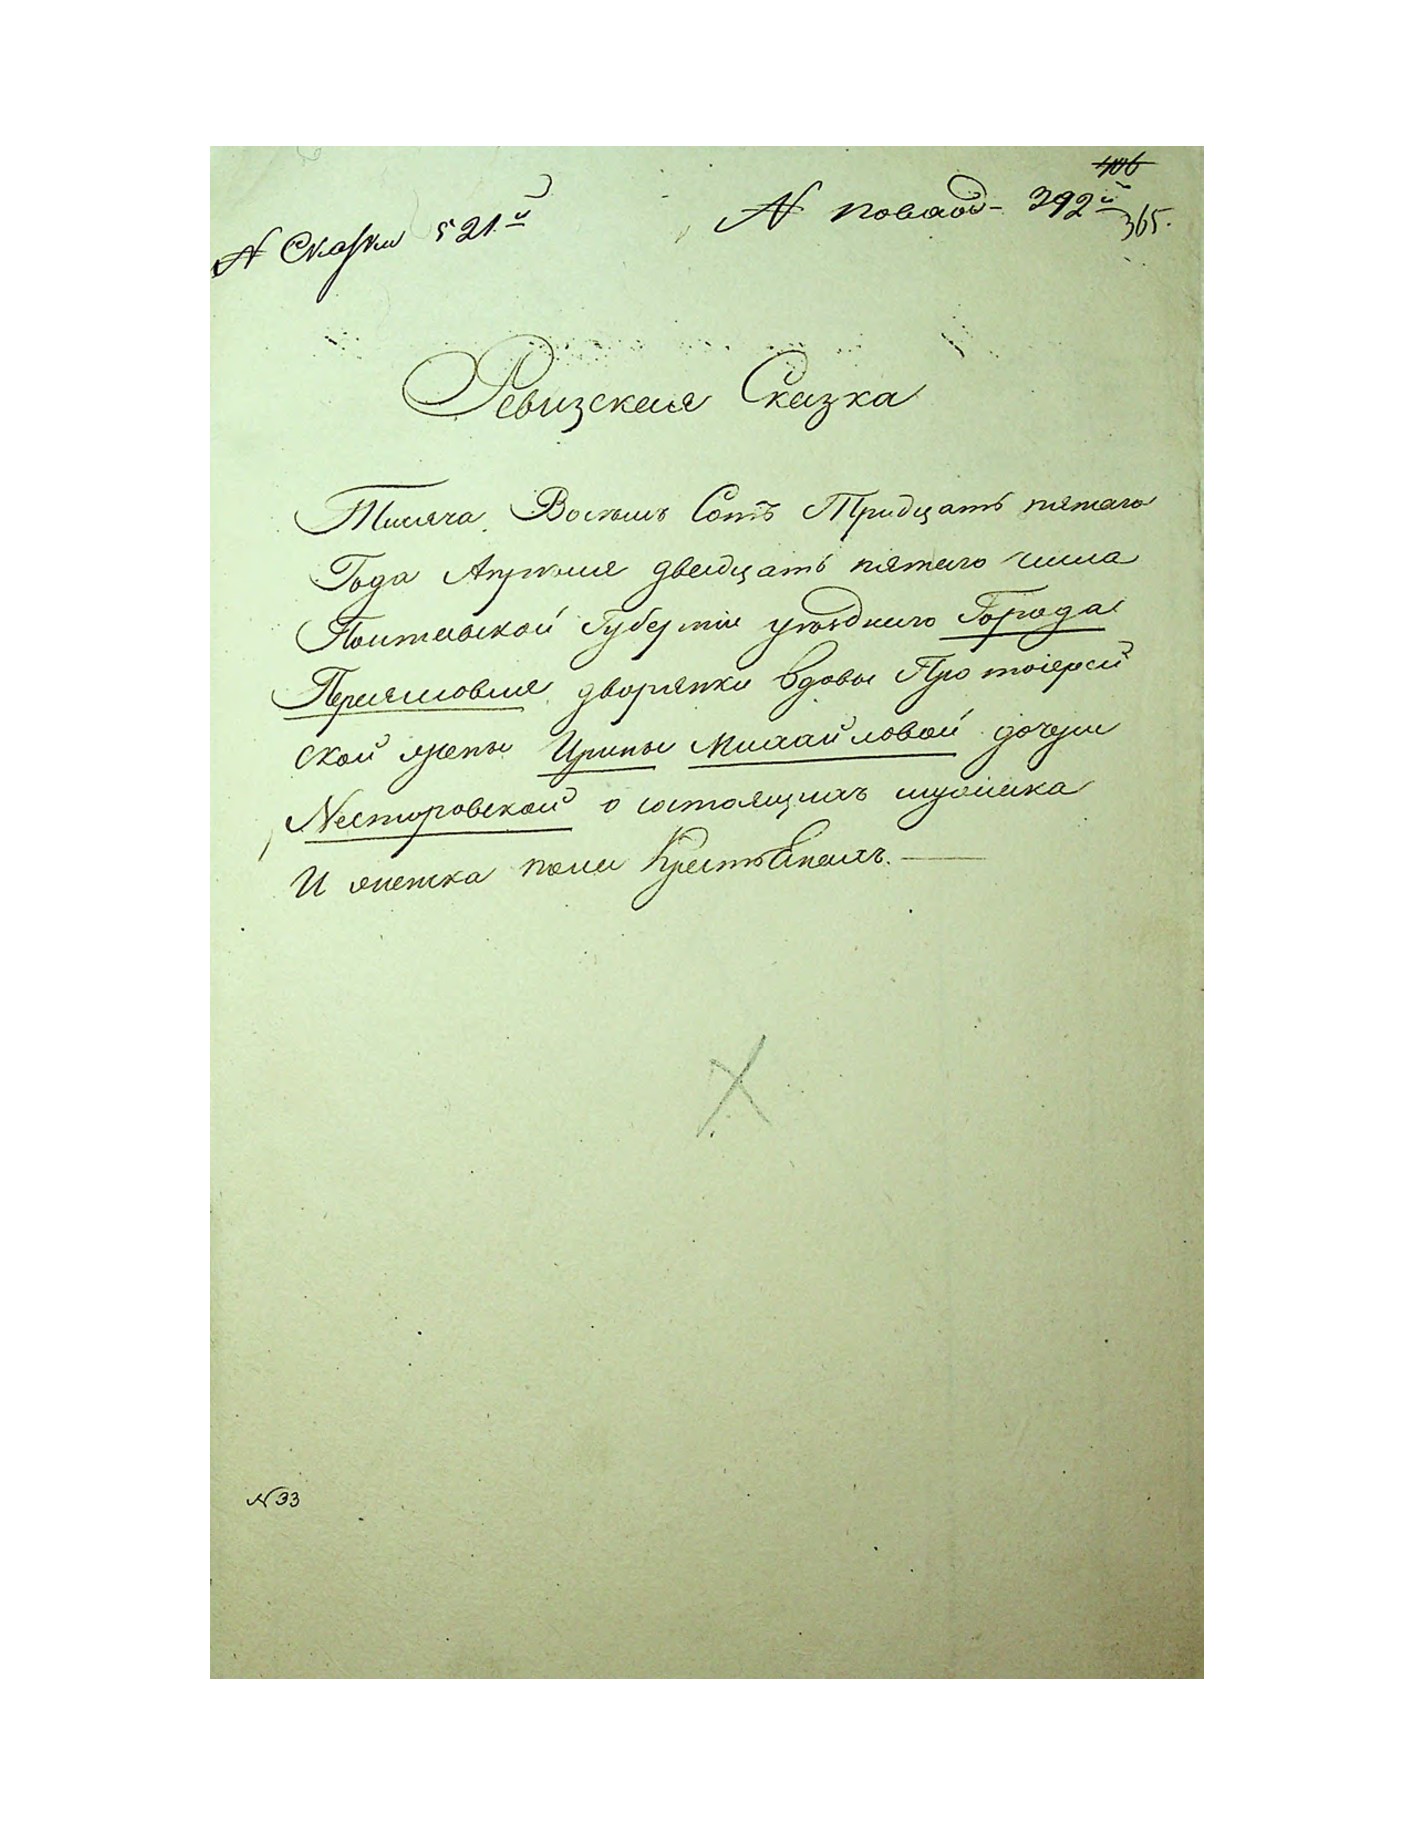 406
N Сказки 521й
N 392й
365.
Ревизская Сказка
Тисяча Восемь Сотъ Тридцать пятаго
Года Апреля двадцать пятаго числа
Полтавской Губерніи уезднаго Города
Переяславля дворянки вдовы Протоіерей
ской жены Ирины Михайловой дочери
Несторовской о состоящихъ мужеска
И женска пола Крестьянахъ.
N 33